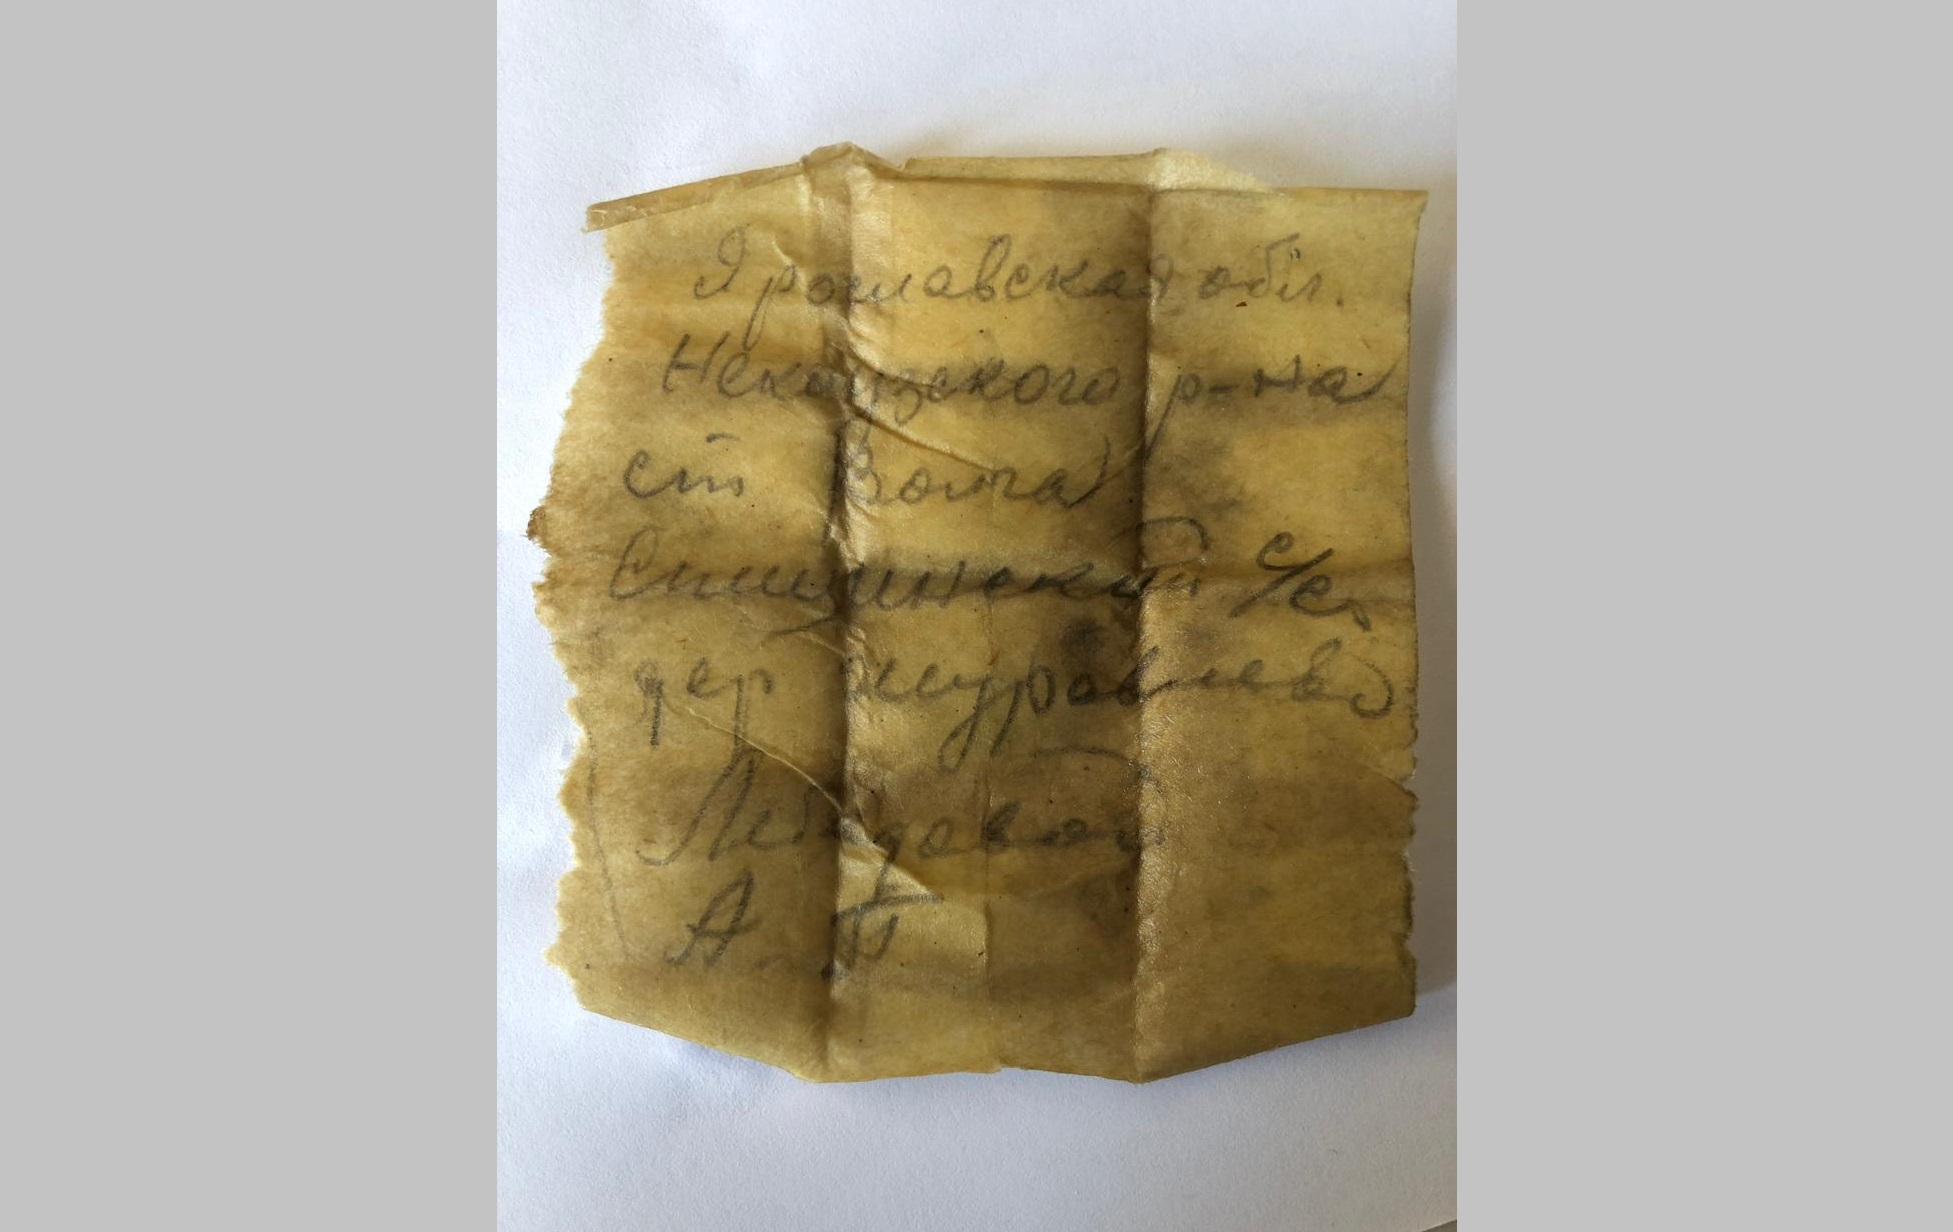 Ярославская обл.
Некоузского р-на
ст Волга
Спицинский с/с
дер журавлево
Лебедовой
А. П